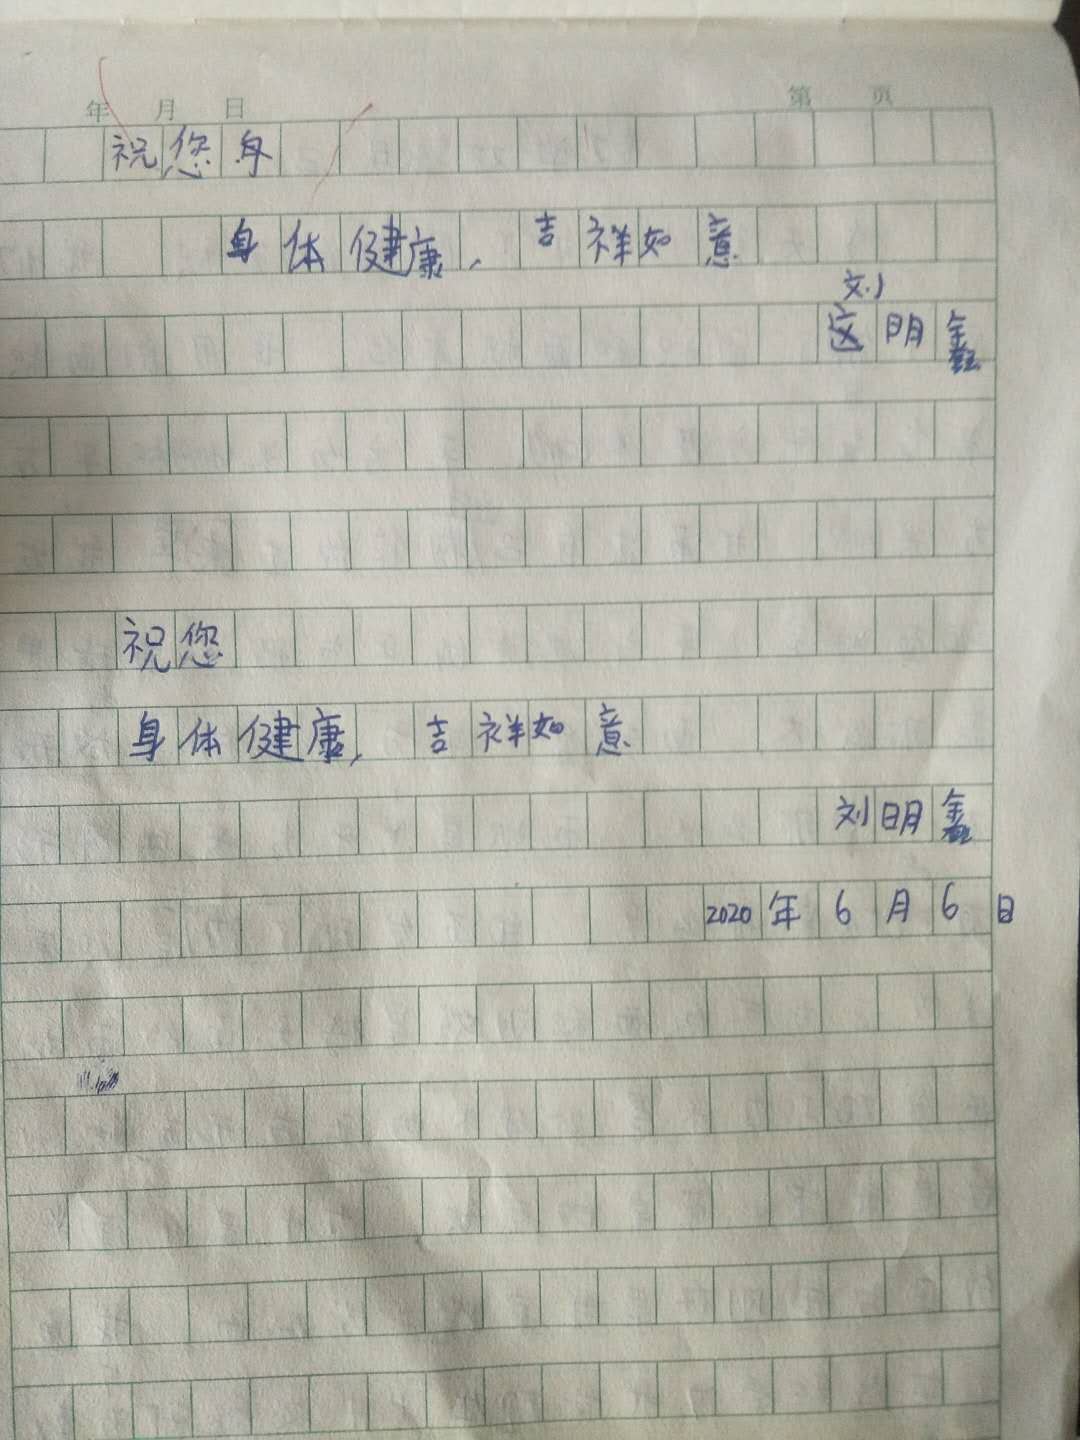 年 月 日 第 页
祝您身
身体健康，吉祥如意
刘
这明鑫
祝您
身体健康，吉祥如意
刘明鑫
2020年6月6日